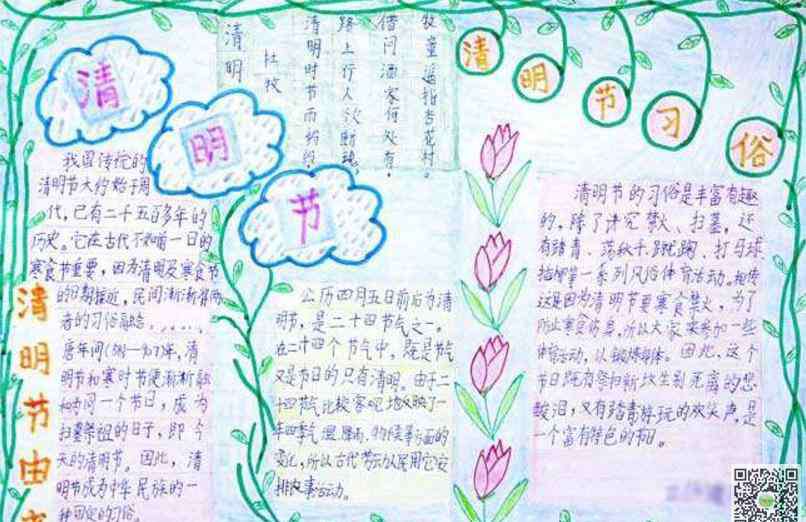 清
明
节
清明
杜牧
清明时节雨纷纷
路上行人欲断魂。
借问酒家何处有,
牧童遥指杏花村。
清明节习俗
我国传统的
清明节大约始于周
代,已有二千五百多年的
历史。它在古代不如前一日的
寒食节重要,因为清明及寒食节
的日期接近,民间渐渐将两
者的习俗融合......
唐年间
明节和寒时节便渐渐融
和为同一个节日,成为
扫墓祭祖的日子,即今
天的清明节。因此,清
明节成为中华民族的一
种固定的习俗。
清明节由
公历四月五日前后为清
明节,是二十四节气之一。
在二十四个节气中,既是节气
又是节日的只有清明。由于二
十四节气比较客观地反映了一
年四季气温、降雨、物候等方面的
变化,所以古代劳动人民用它安
排农事活动。
清明节的习俗是丰富有趣
的,除了讲究禁火、扫墓,还
有踏青、荡秋千、蹴鞠、打马球、
插柳等一系列风俗体育活动。相传
这是因为清明节要寒食禁火,为了
防止寒食伤身,所以大家来参加一些
体育活动,以锻炼身体。因此,这个
节日既有祭扫新坟生别死离的悲
酸泪,又有踏青游玩的欢笑声,是
一个富有特色的节日。